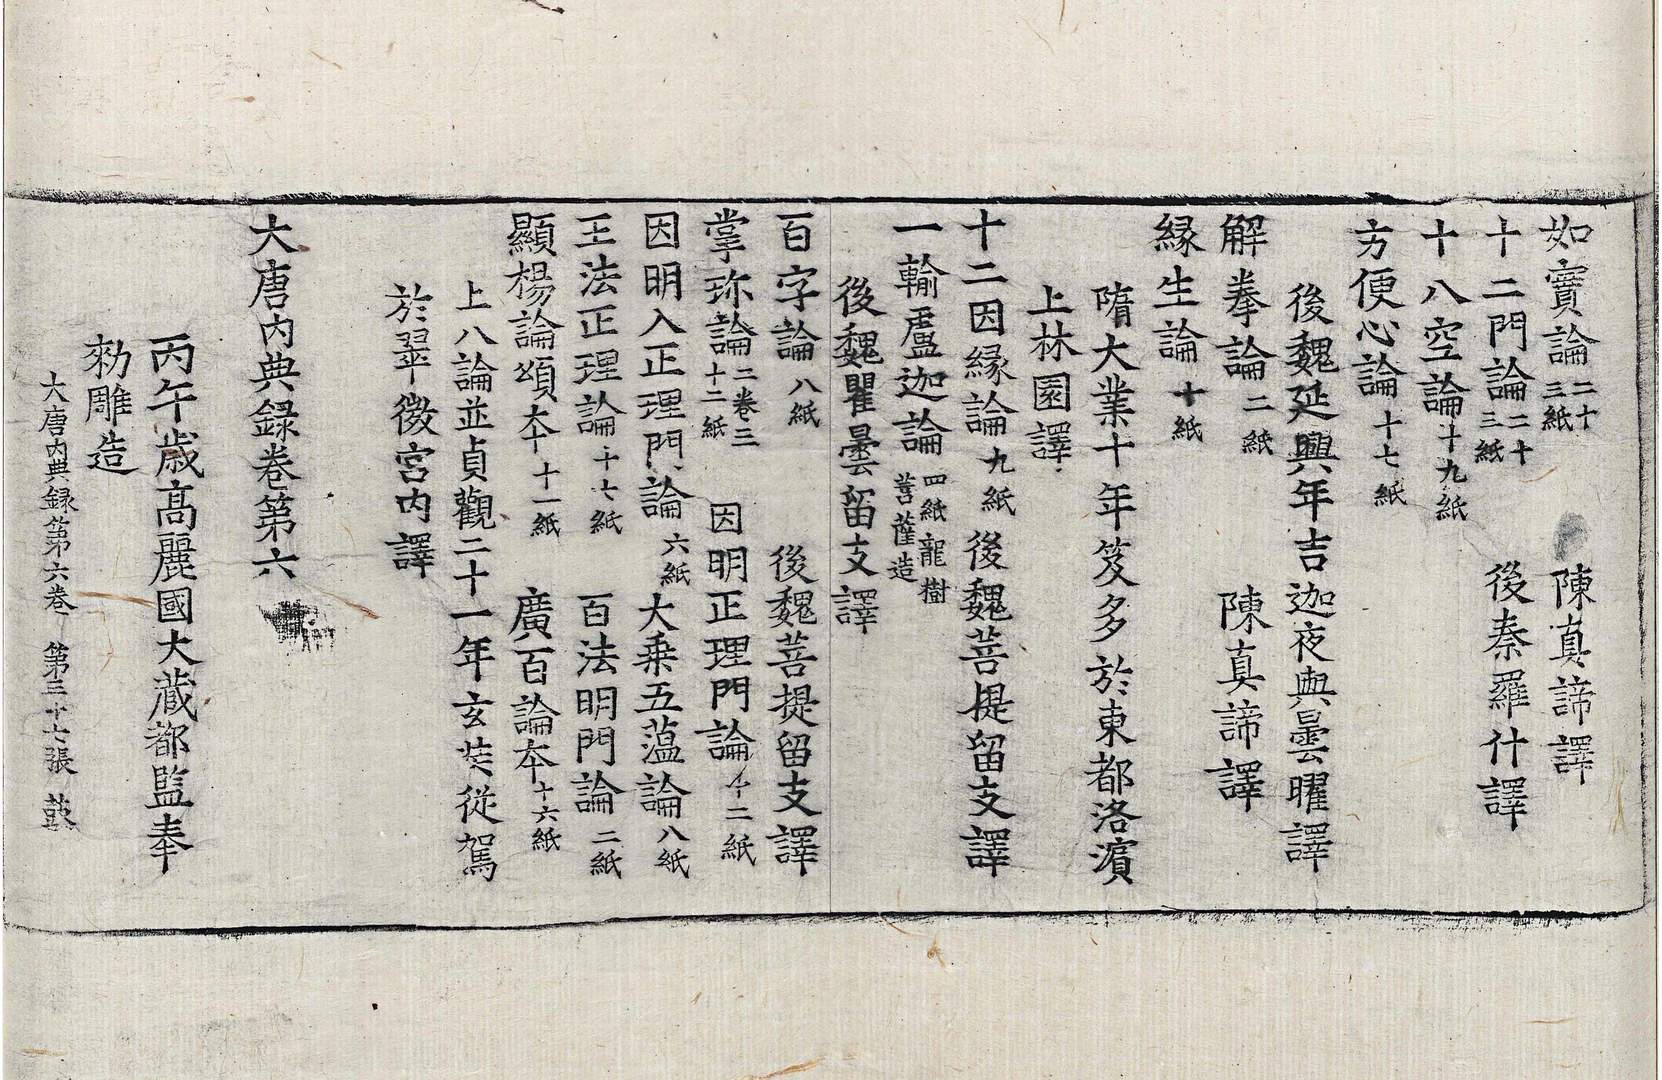 如實論二十三紙 陳真諦譯
十二門論二十三紙 後秦羅什譯
十八空論十九紙
方便心論十七紙
後魏延興年吉迦夜與曇曜譯
解拳論二紙 陳真諦譯
緣生論十紙
隋大業十年笈多於東都洛濱
上林園譯
十二因緣論九紙 後魏菩提留支譯
一輸盧迦論四紙龍樹菩薩造
後魏瞿曇留支譯
百字論八紙 後魏菩提留支譯
掌珎論二卷三十二紙 因明正理門論本十二紙
因明入正理門論六紙 大乘五蕰論八紙
王法正理論十七紙 百法明門論二紙
顯揚論頌本十一紙 廣百論本十六紙
上八論並貞觀二十一年玄奘從駕
於翠微宮內譯
大唐內典録卷第六
丙午歳高麗國大藏都監奉
勑雕造
大唐內典録第六卷 第三十七張